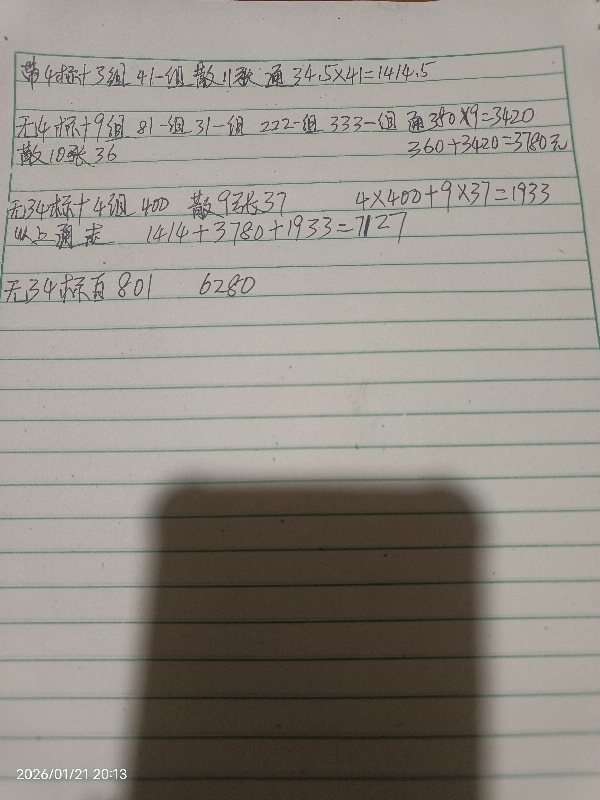 带4标十3组 41一组 散11张 通 34.5×41=1414.5
无4标十9组 81一组 31一组 222一组 333一组 通380×9=3420
散10张36 360+3420=3780元
无34标十4组 400 散9张37 4×400+9×37=1933
以上通走 1414+3780+1933=7127
无34标百 801 6280
2026/01/21 20:13